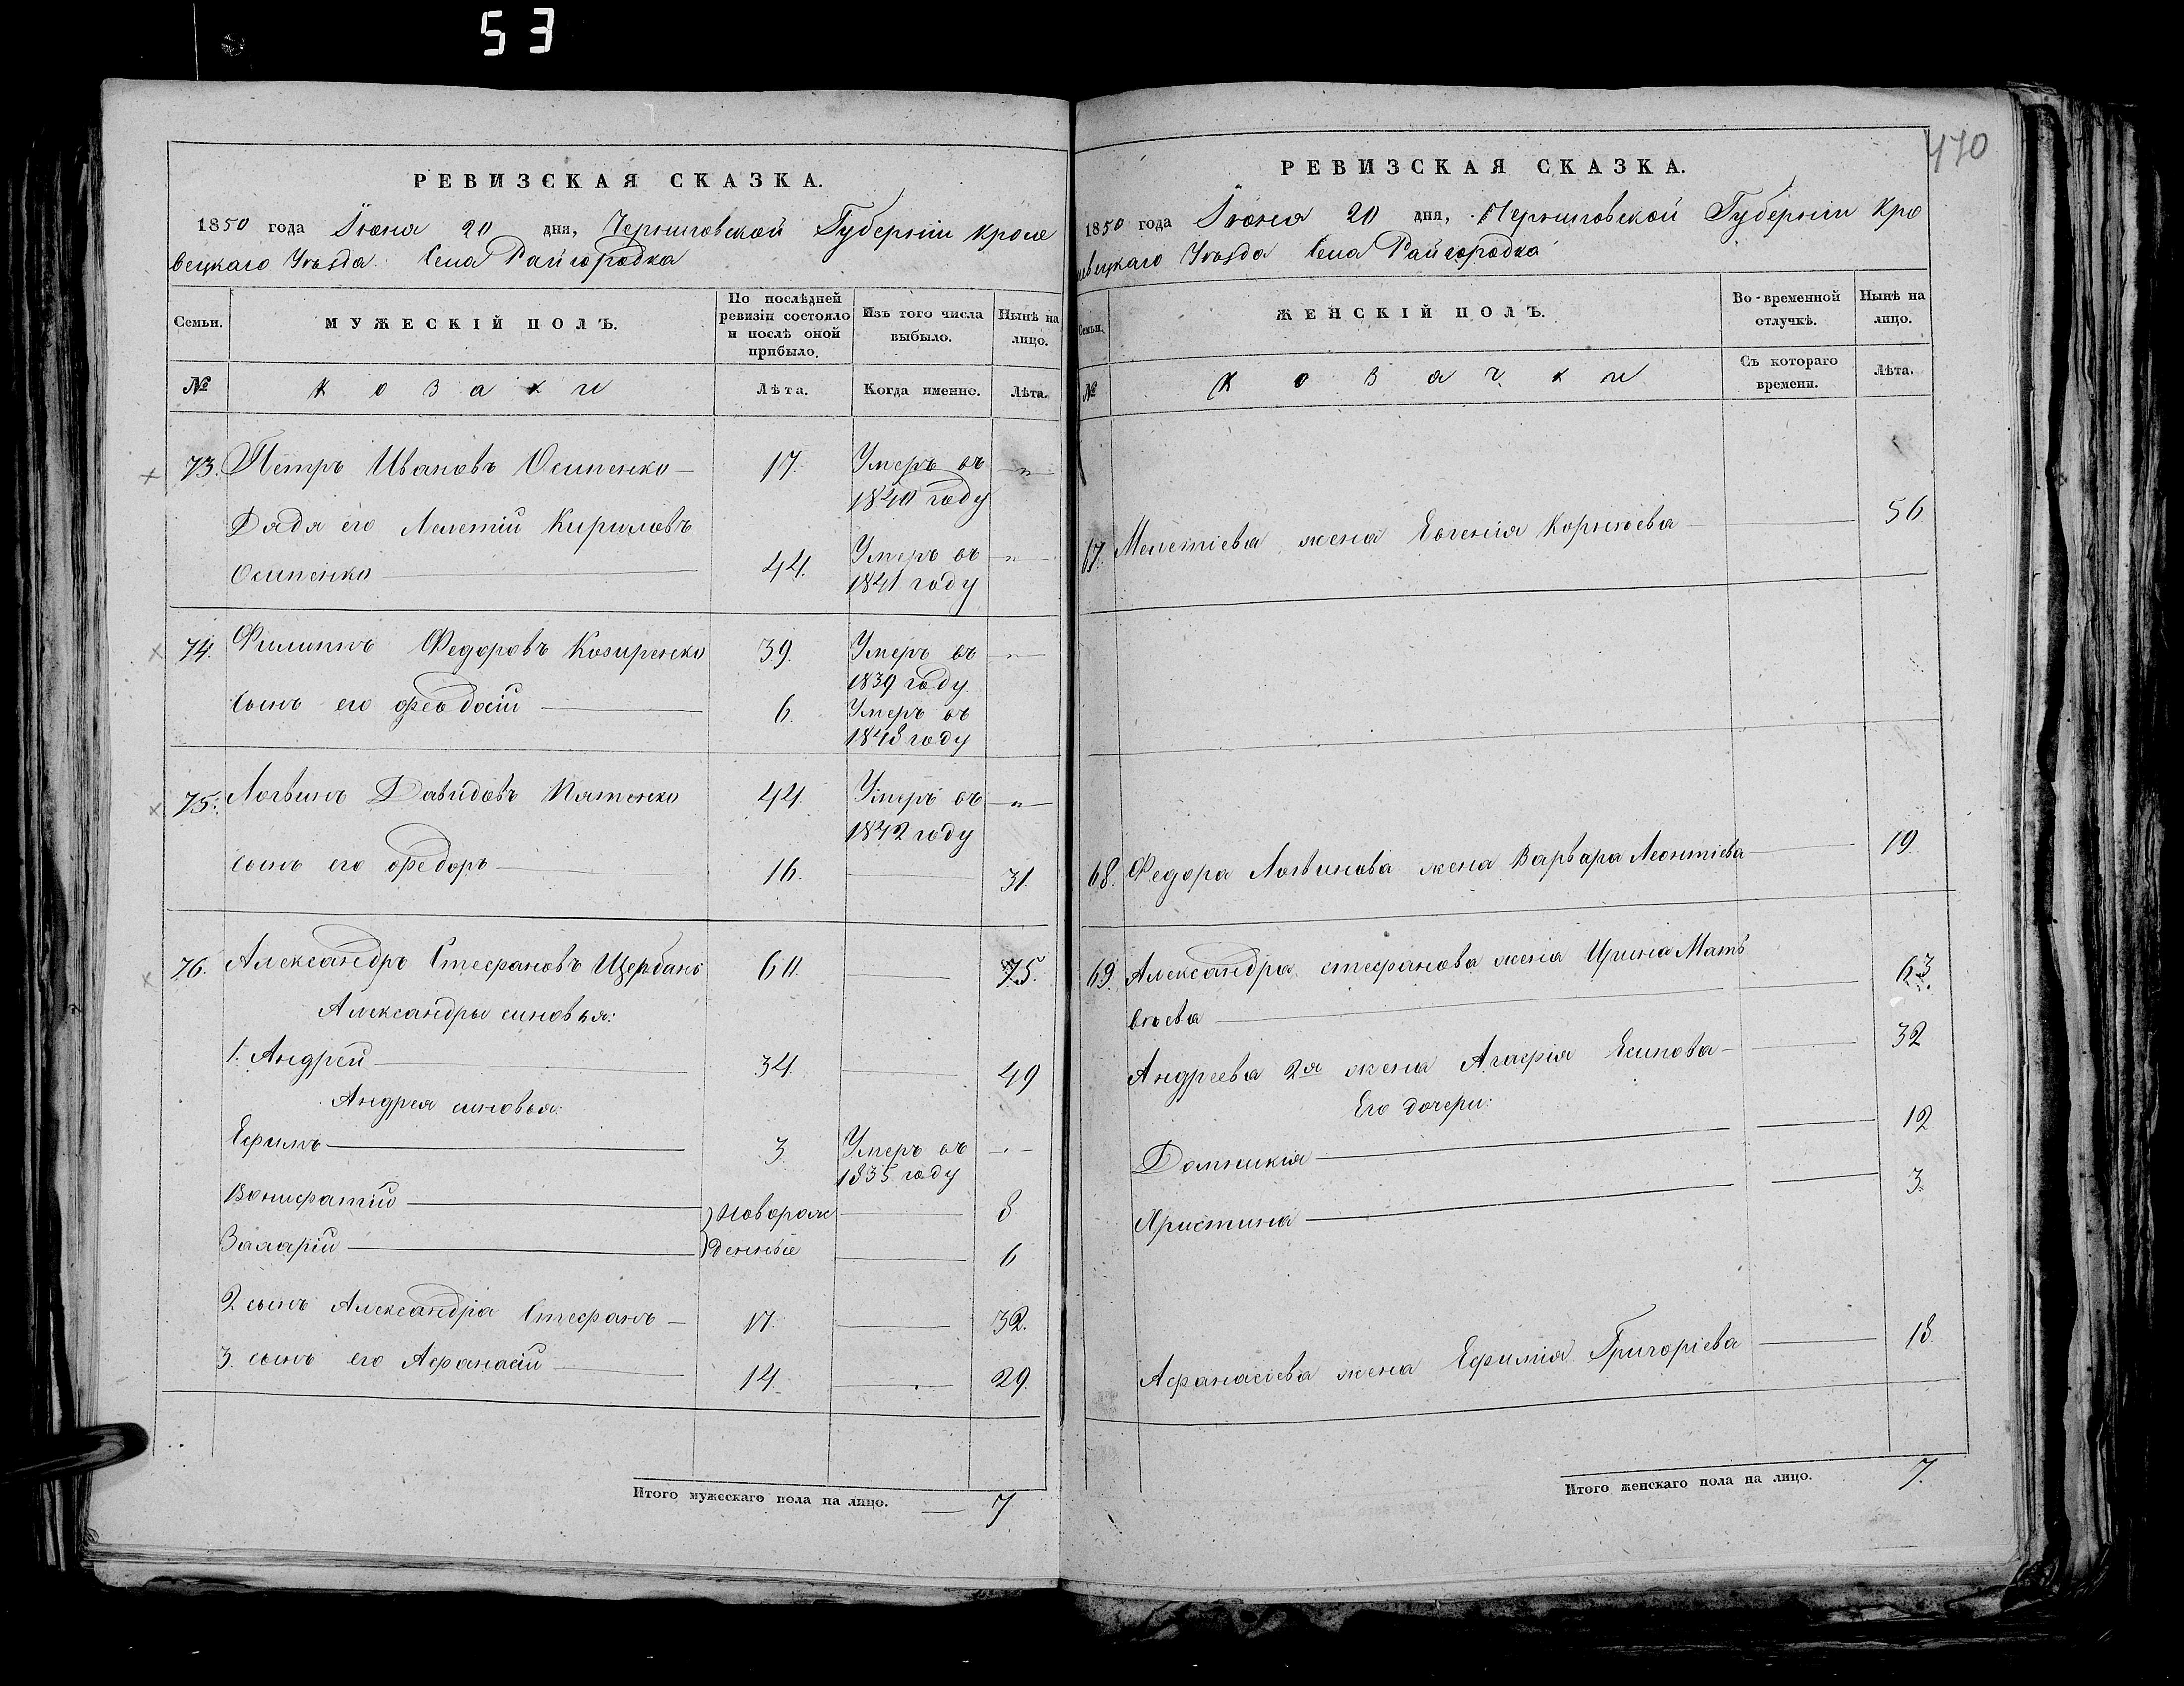 53
РЕВИЗСКАЯ СКАЗКА.
1850 года Іюня 20 дня, Черниговской Губерніи Кроле
вецкаго Уѣзда. Села Райгородка
Семьи. МУЖЕСКІЙ ПОЛЪ. По послѣдней ревизіи состояло и послѣ оной прибыло. Изъ того числа выбыло. Нынѣ на лицо.
№ Козаки Лѣта. Когда именно. Лѣта.
73. Петръ Ивановъ Осипенко — 17. Умеръ въ — „ —
1840 году
Дядя его Мелетій Кириловъ
Осипенко — 44. Умеръ въ — „ —
1841 году
74. Филиппъ Федоровъ Козиренко 39. Умеръ въ — „ —
1839 году
сынъ его Феодосій — 6. Умеръ въ
1843 году
75. Логвинъ Давидовъ Пятенко 44. Умеръ въ — „ —
1842 году
сынъ его Федоръ — 16. — 31.
76. Александръ Стефановъ Щербань 60. — 75.
Александры синовья:
1. Андрей — 34. — 49
Андрея синовья:
Ефимъ — 3. Умеръ въ — „ —
1835 году
Вонифатій — новорож — 8
Валарій — денные — 6
2 сынъ Александра Стефанъ — 17. — 32.
3. сынъ его Афанасій — 14. — 29.
Итого мужескаго пола на лицо. — 7
470
РЕВИЗСКАЯ СКАЗКА.
1850 года Іюня 20 дня, Черниговской Губерніи Кро
левецкаго Уѣзда Села Райгородка
Семьи. ЖЕНСКІЙ ПОЛЪ. Во-временной отлучкѣ. Нынѣ на лицо.
№ Козачки Съ котораго времени. Лѣта.
67. Мелетіева жена Евгенія Корніева — 56
68. Федора Логвинова жена Варвара Леонтіева — 19.
69. Александра Стефанова жена Ирина Матъ
вѣева — 63.
Андреева 2я жена Агафія Есипова — 32
Его дочери:
Домникія — 12
Христина — 3.
Афанасіева жена Ефимія Григоріева — 18
Итого женскаго пола на лицо. 7.